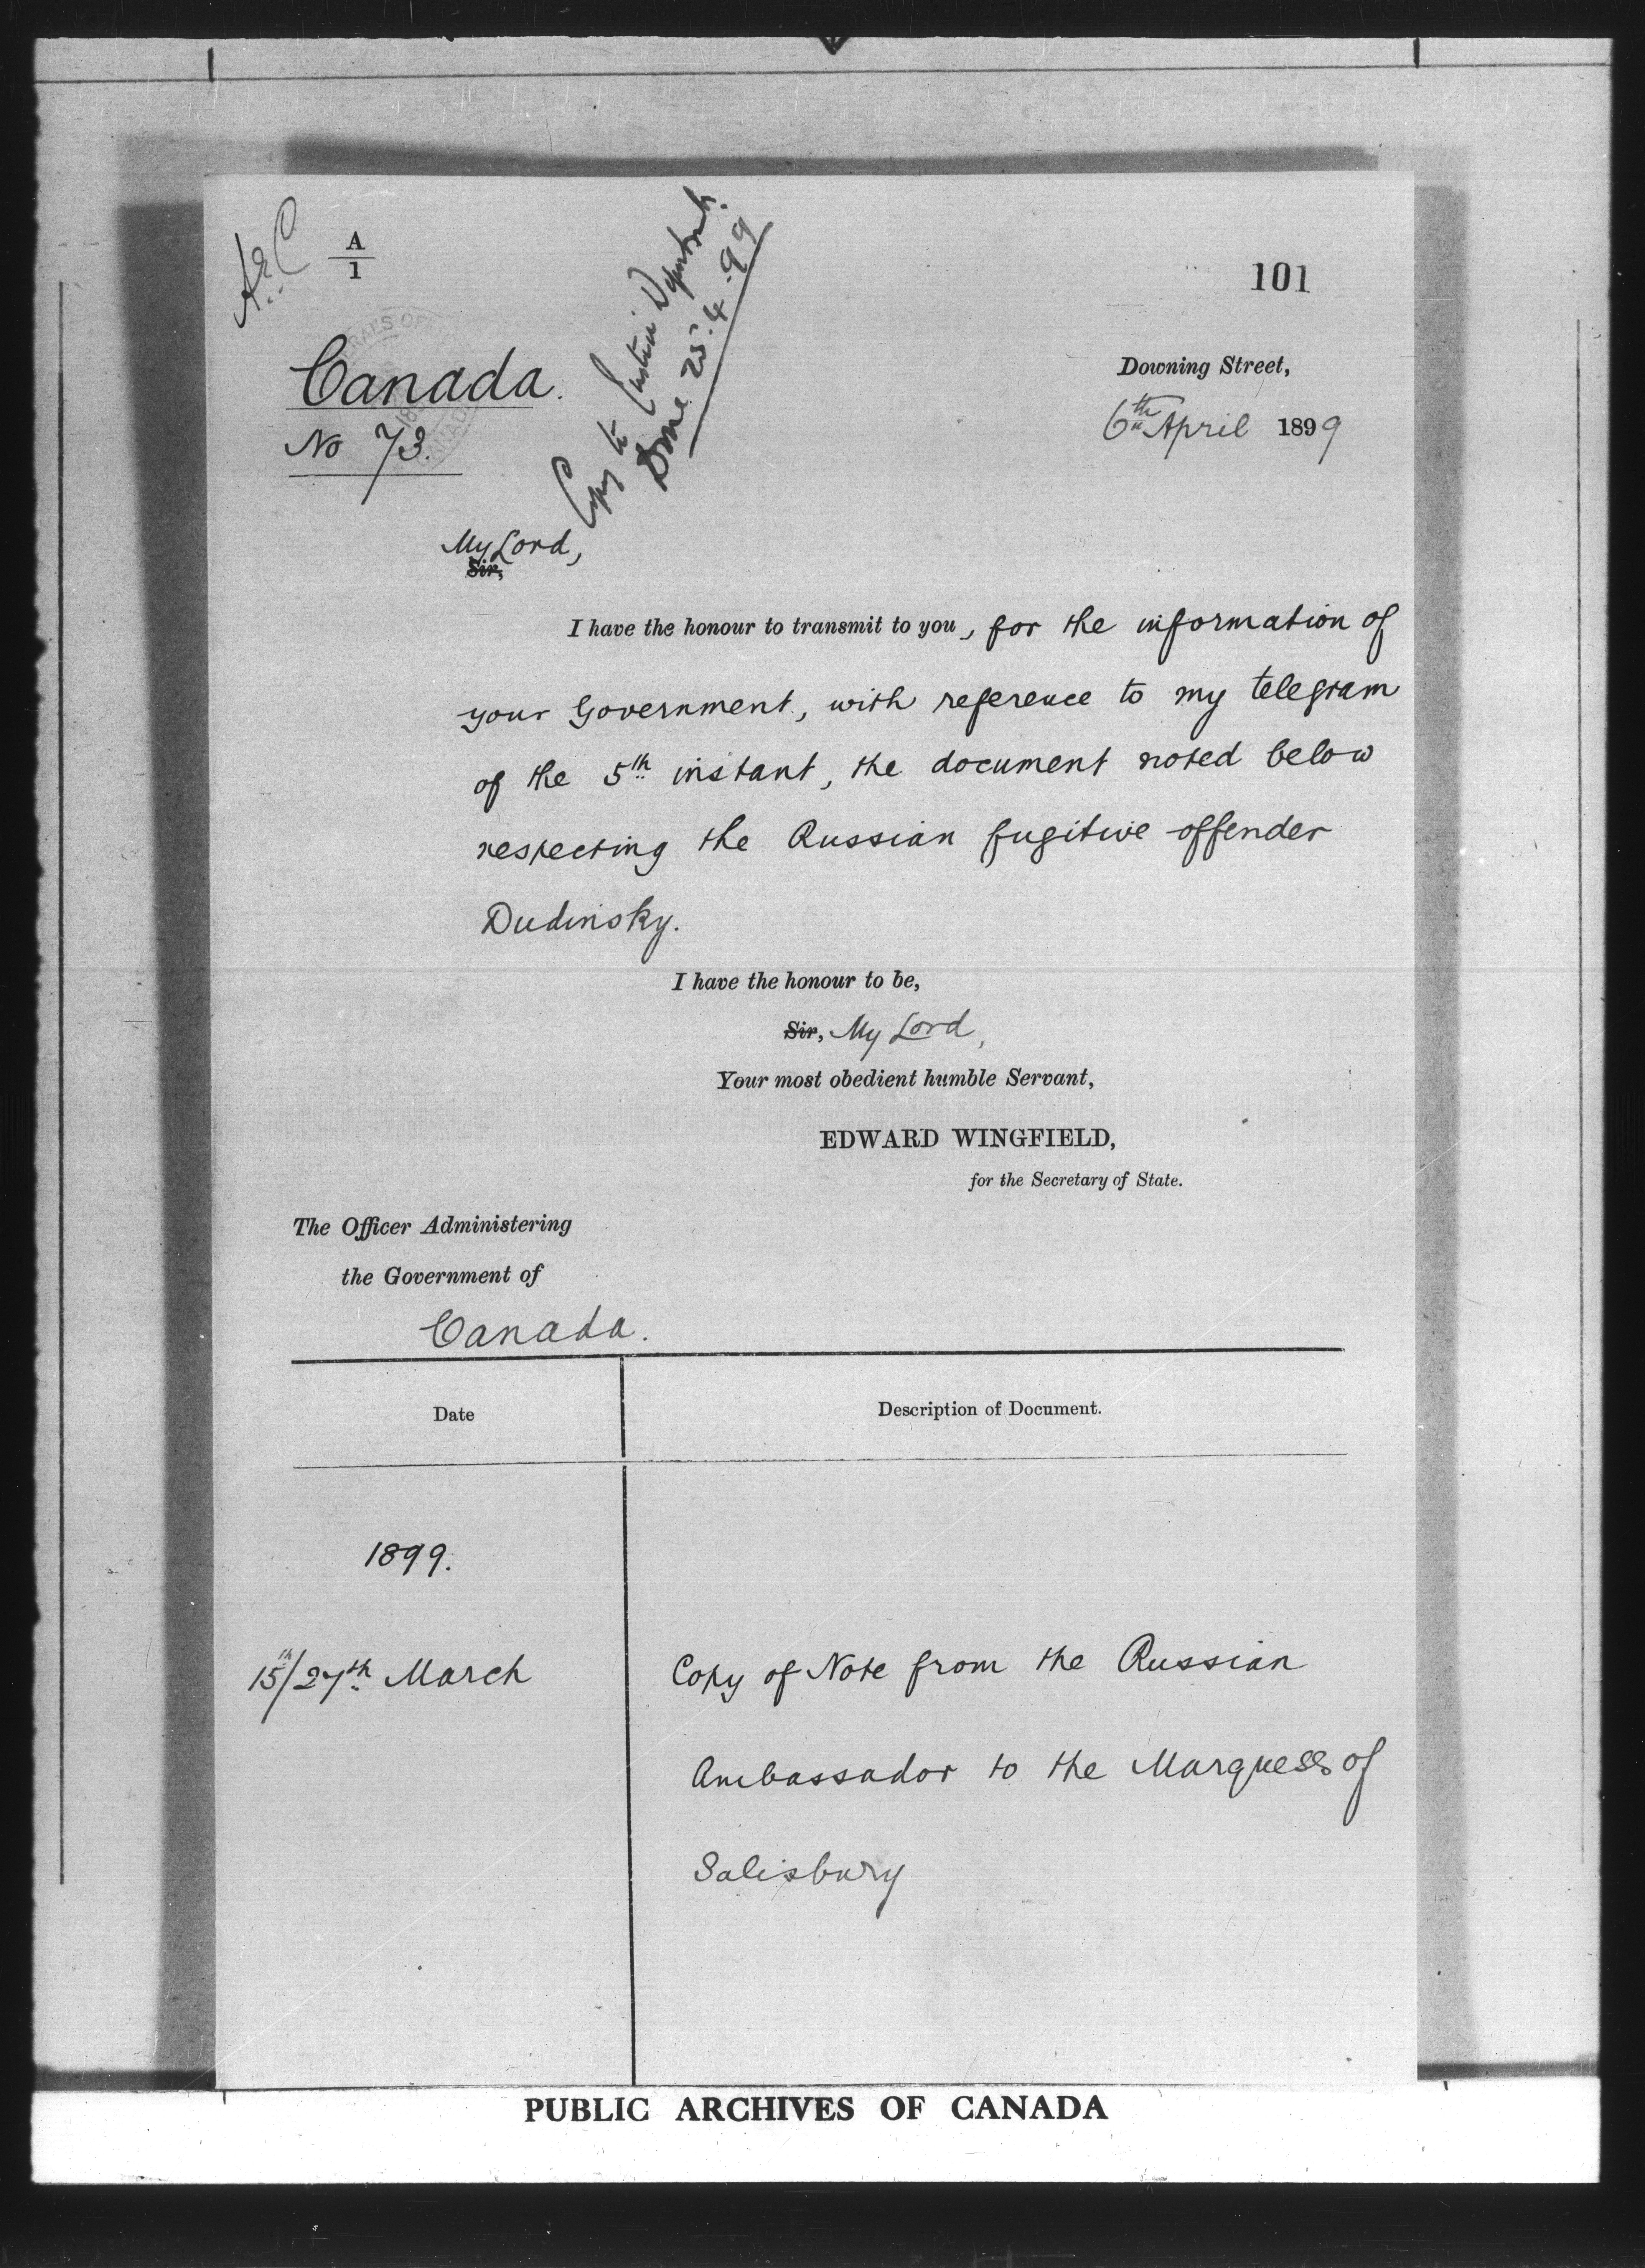 A
1
101
Canada.
No 73.
Copy to Justice Department.
Done 25.4.99
Downing Street,
6th April 1899
My Lord,
Sir,
I have the honour to transmit to you, for the information of
your Government, with reference to my telegram
of the 5th instant, the document noted below
respecting the Russian fugitive offender
Dudinsky.
I have the honour to be,
Sir, My Lord,
Your most obedient humble Servant,
EDWARD WINGFIELD,
for the Secretary of State.
The Officer Administering
the Government of
Canada.
Date
Description of Document.
1899.
15th/27th March
Copy of Note from the Russian
Ambassador to the Marquess of
Salisbury
PUBLIC ARCHIVES OF CANADA